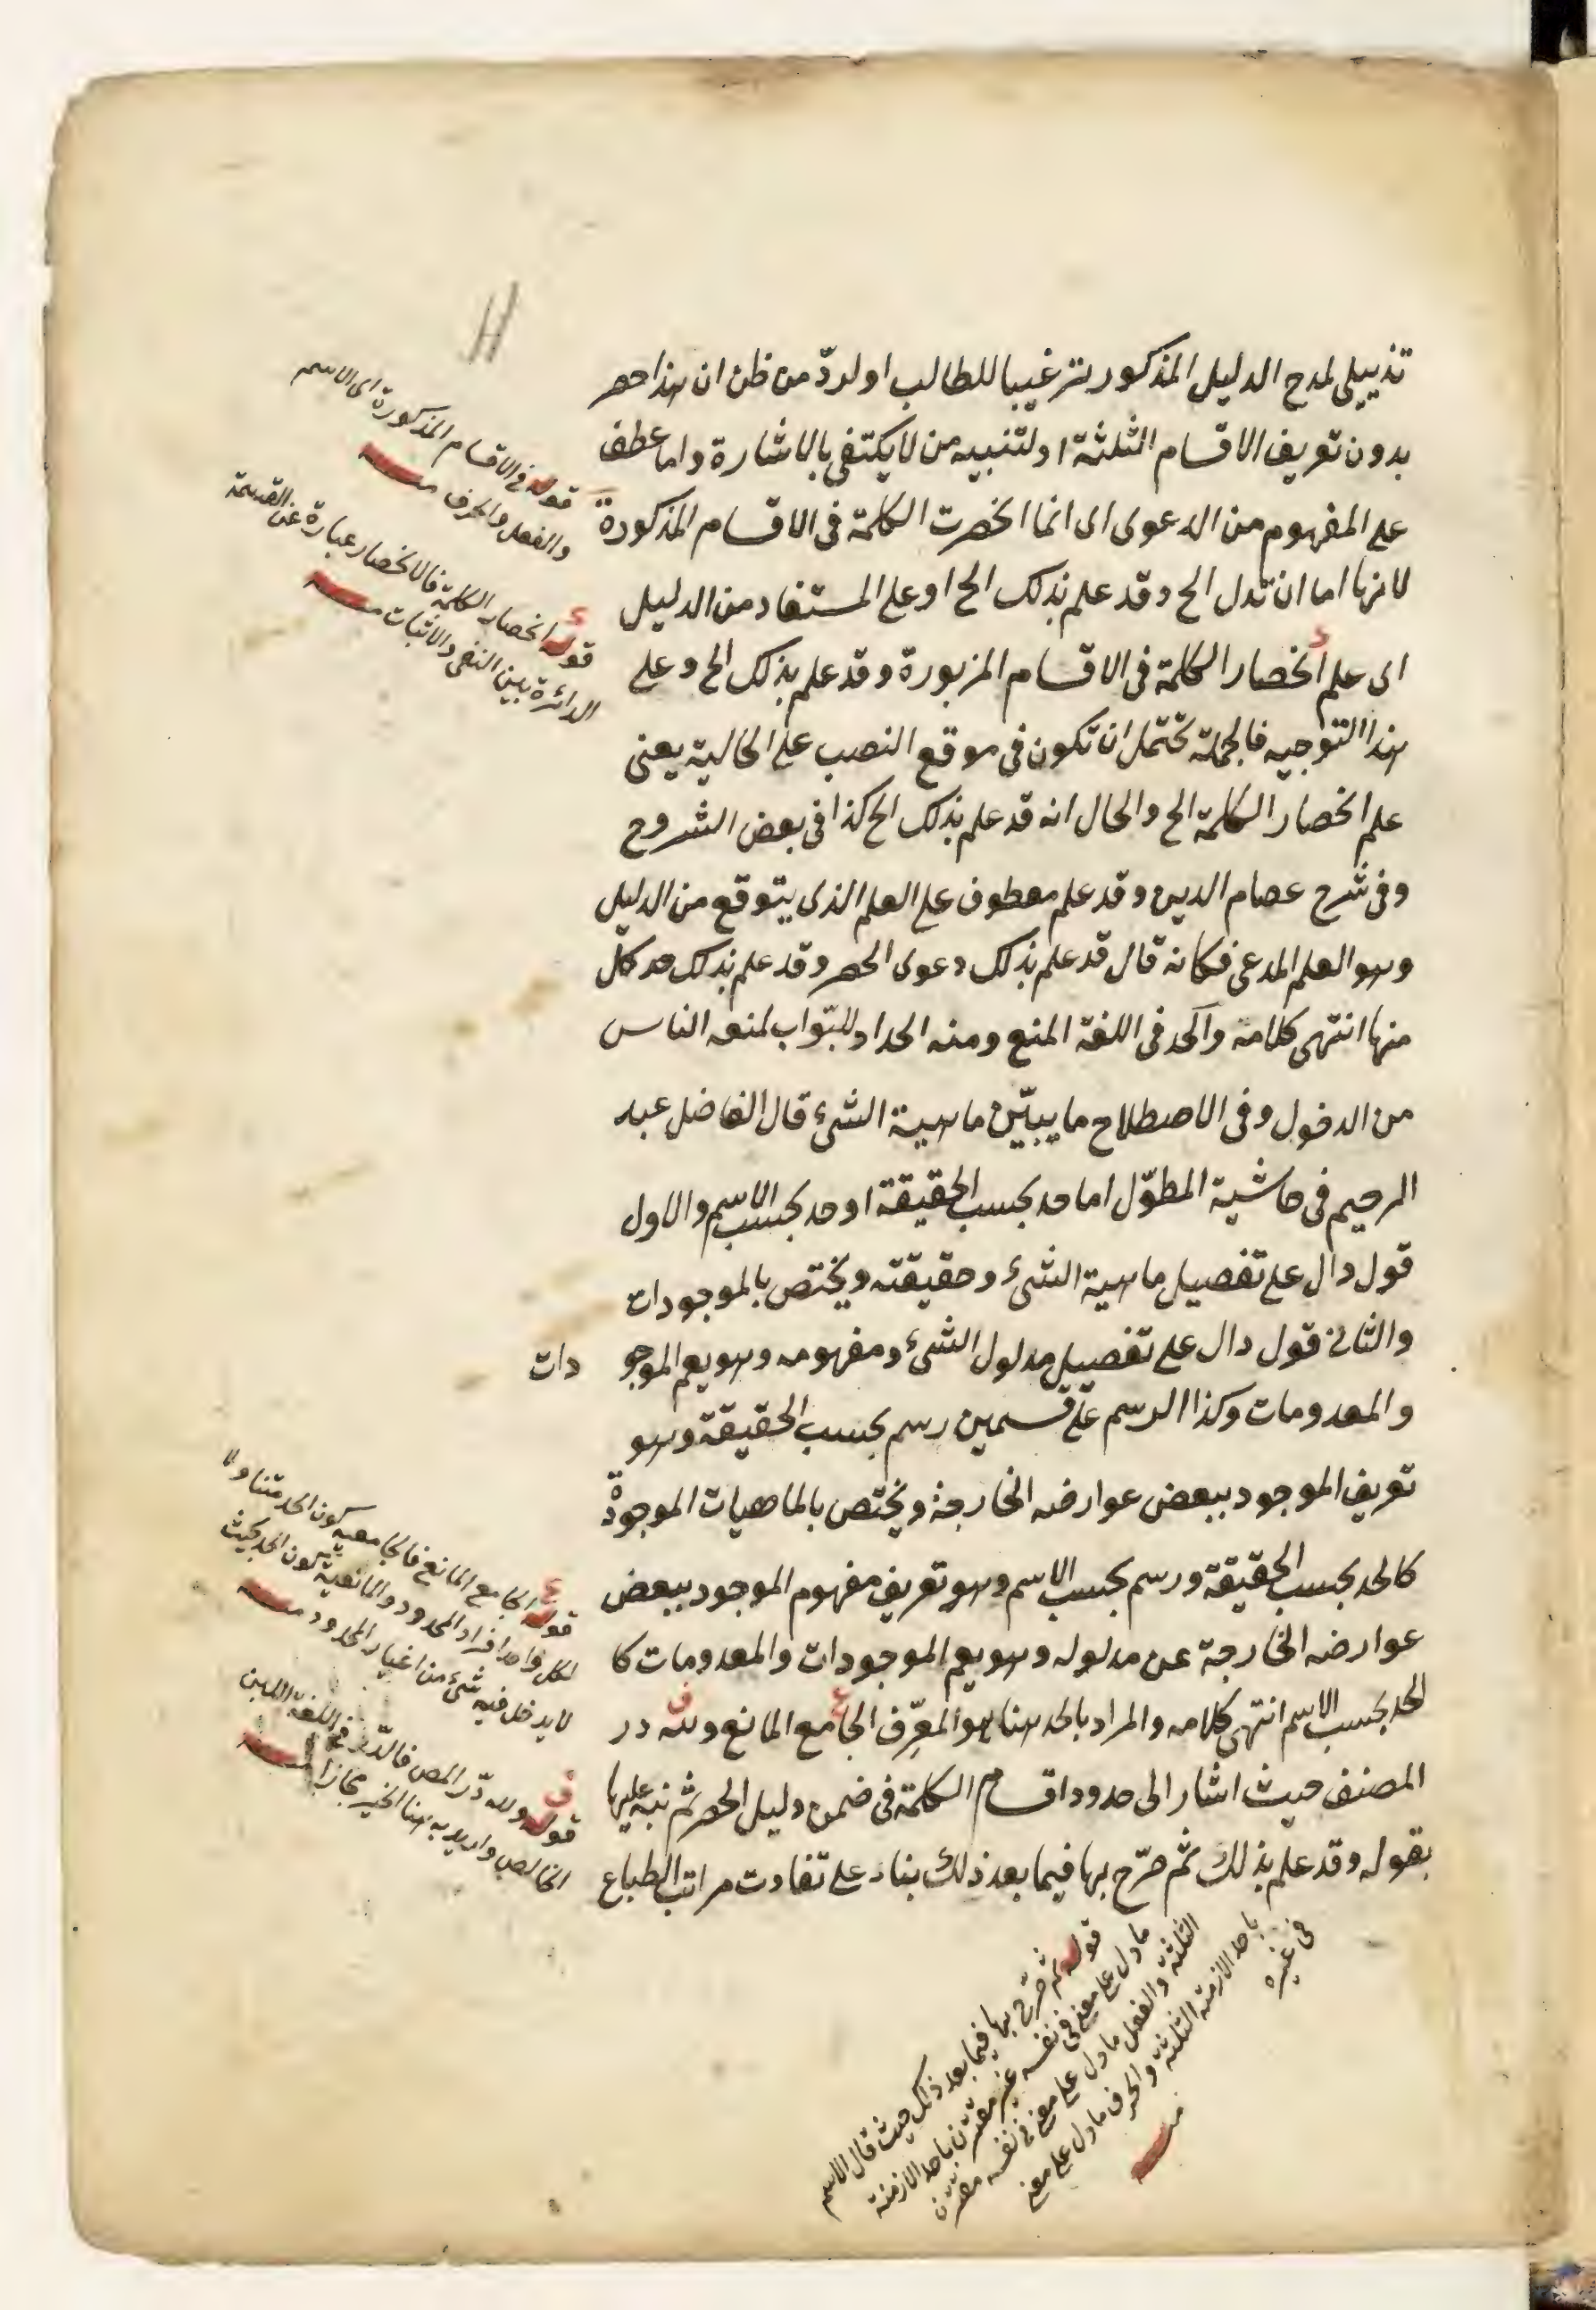 تذييلى لمدح الدليل المذكور ترغيبا للطالب او لردّ من ظن ان هذا حصر
بدون تعريف الاقسام الثلثة او لتنبيه من لا يكتفى بالاشارة واما عطف
على المفهوم من الدعوى اى انما انحصرت الكلمة فى الاقسام المذكورة
لانها اما ان تدل الح وقد علم بذلك الح او على المستفاد من الدليل
اى علم انحصار الكلمة فى الاقسام المزبورة وقد علم بذلك الح وعلى
هذا التوجيه فالجملة تحتمل ان تكون فى موقع النصب على الحالية يعنى
علم انحصار الكلمة الح والحال انه قد علم بذلك الح كذا فى بعض الشروح
وفى شرح عصام الدين وقد علم معطوف على العلم الذى يتوقع من الدليل
وهو العلم المدعى فكانه قال قد علم بذلك دعوى الحصر وقد علم بذلك حد كل
منها انتهى كلامه والحد فى اللغة المنع ومنه الحداد للبوّاب لمنعه الناس
من الدخول وفى الاصطلاح ما يبيّن ماهية الشئ قال الفاضل عبد
الرحيم فى حاشية المطوّل اما حد بحسب الحقيقة او حد بحسب الاسم والاول
قول دال على تفصيل ماهية الشئ وحقيقته ويختص بالموجودات
والثانى قول دال على تفصيل مدلول الشئ ومفهومه وهو يعم الموجو دات
والمعدومات وكذا الرسم على قسمين رسم بحسب الحقيقة وهو
تعريف الموجود ببعض عوارضه الخارجة ويختص بالماهيات الموجودة
كالحد بحسب الحقيقة ورسم بحسب الاسم وهو تعريف مفهوم الموجود ببعض
عوارضه الخارجة عن مدلوله وهو يعم الموجودات والمعدومات كا
لحد بحسب الاسم انتهى كلامه والمراد بالحد هنا هو المعرّف الجامع المانع ولله در
المصنف حيث اشار الى حدود اقسام الكلمة فى ضمن دليل الحصر ثم نبه عليها
بقوله وقد علم بذلك ثم صرّح بها فيما بعد ذلك بناء على تفاوت مراتب الطباع
قوله فى الاقسام المذكورة اى الاسم
والفعل والحرف منه
قوله انحصار الكلمة فالانحصار عبارة عن القسمة
الدائرة بين النفى والاثبات منه
قوله الجامع المانع فالجامعية كون الحد متناولا
لكل واحد افراد المحدود والمانعية كون الحد بحيث
لا يدخل فيه شئ من اغيار المحدود منه
قوله ولله درّ المص فالدّر فى اللغة اللبن
الخالص واريد به هنا الخير مجازا منه
قوله ثم صرّح بها فيما بعد ذلك حيث قال الاسم
ما دل على معنى فى نفسه غير مقترن باحد الازمنة
الثلثة والفعل ما دل على معنى فى نفسه مقترن
باحد الازمنة الثلثة والحرف ما دل على معنى
فى غيره
منه